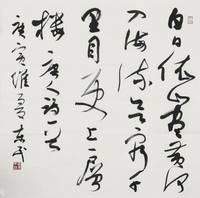 白日依山尽黄河
入海流欲穷千
里目更上一层
楼唐人诗一首